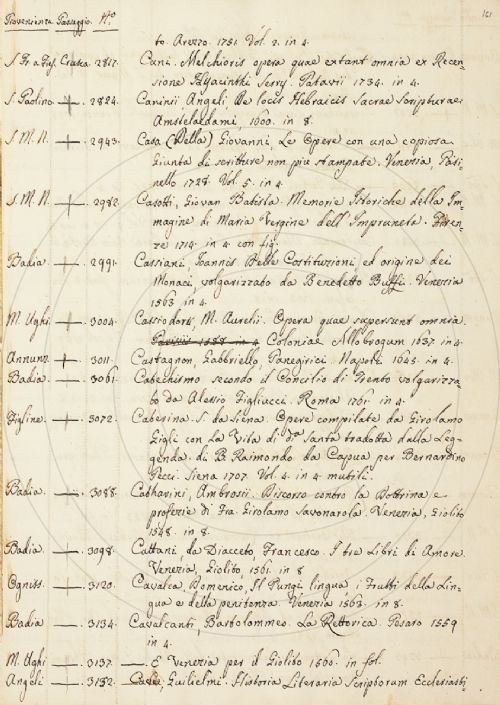 161
Provenienza Passaggio. N.o
to. Arezzo. 1751. Vol. 2. in 4.
2817. Cani. Melchioris opera quae extant omnia ex Recen-
sione Hyacinthi Serry. Patavii 1734. in 4.
S. Paolino. 2824. Caninii, Angeli De locis Hebraicis Sacrae Scripturae.
Amstelaedami, 1600. in 8.
S. M. N. 2943. Casa (Della) Giovanni, Le Opere con una copiosa
Giunta di scritture non più stampate. Venezia, Pasi-
nello 1728. Vol. 5. in 4.
S. M. N. 2982. Casotti, Giovan Batista. Memorie Istoriche della Im-
magine di Maria Vergine dell'Impruneta. Firen-
ze 1714. in 4. con fig.
Badia 2991. Cassiani, Joannis. Delle Costituzioni, ed origine dei
Monaci, volgarizzato da Benedetto Buffi. Venezia
1563. in 4.
M. Ughi 3004. Cassiodori, M. Aurelii. Opera quae supersunt omnia.
Parisiis 1588. in 4. Coloniae Allobrogum 1637. in 4.
Annunz. 3011. Castagnori, Gabbriello, Panegirici. Napoli. 1645. in 4.
Badia 3061. Catechismo secondo il Concilio di Trento volgarizza-
to da Alessio Figliucci. Roma 1761. in 4.
Figline 3072. Caterina. S. da Siena. Opere compilate da Girolamo
Gigli con la Vita di d.a Santa tradotta dalla Leg-
genda di B. Raimondo da Capua per Bernardino
Pecci. Siena 1707. Vol. 4. in 4. mutili.
Badia 3088. Catharini, Ambrosii. Discorso contro la Dottrina e
profezie di Fra. Girolamo Savonarola. Venezia, Giolito
1548. in 8.
Badia 3098. Cattani, da Diacceto, Francesco. I tre Libri di Amore.
Venezia, Giolito, 1561. in 8.
Ogniss. 3120. Cavalca, Domenico, Il Pungi lingua, i Frutti della Lin-
gua e della penitenza. Venezia 1563. in 8.
Badia 3134. Cavalcanti, Bartolommeo. La Rettorica. Pesaro 1559
in 4.
M. Ughi 3137. E Venezia per il Giolito 1560. in fol.
Angeli 3152. Cave, Guilielmi. Historia Literaria Scriptorum Ecclesiasti-